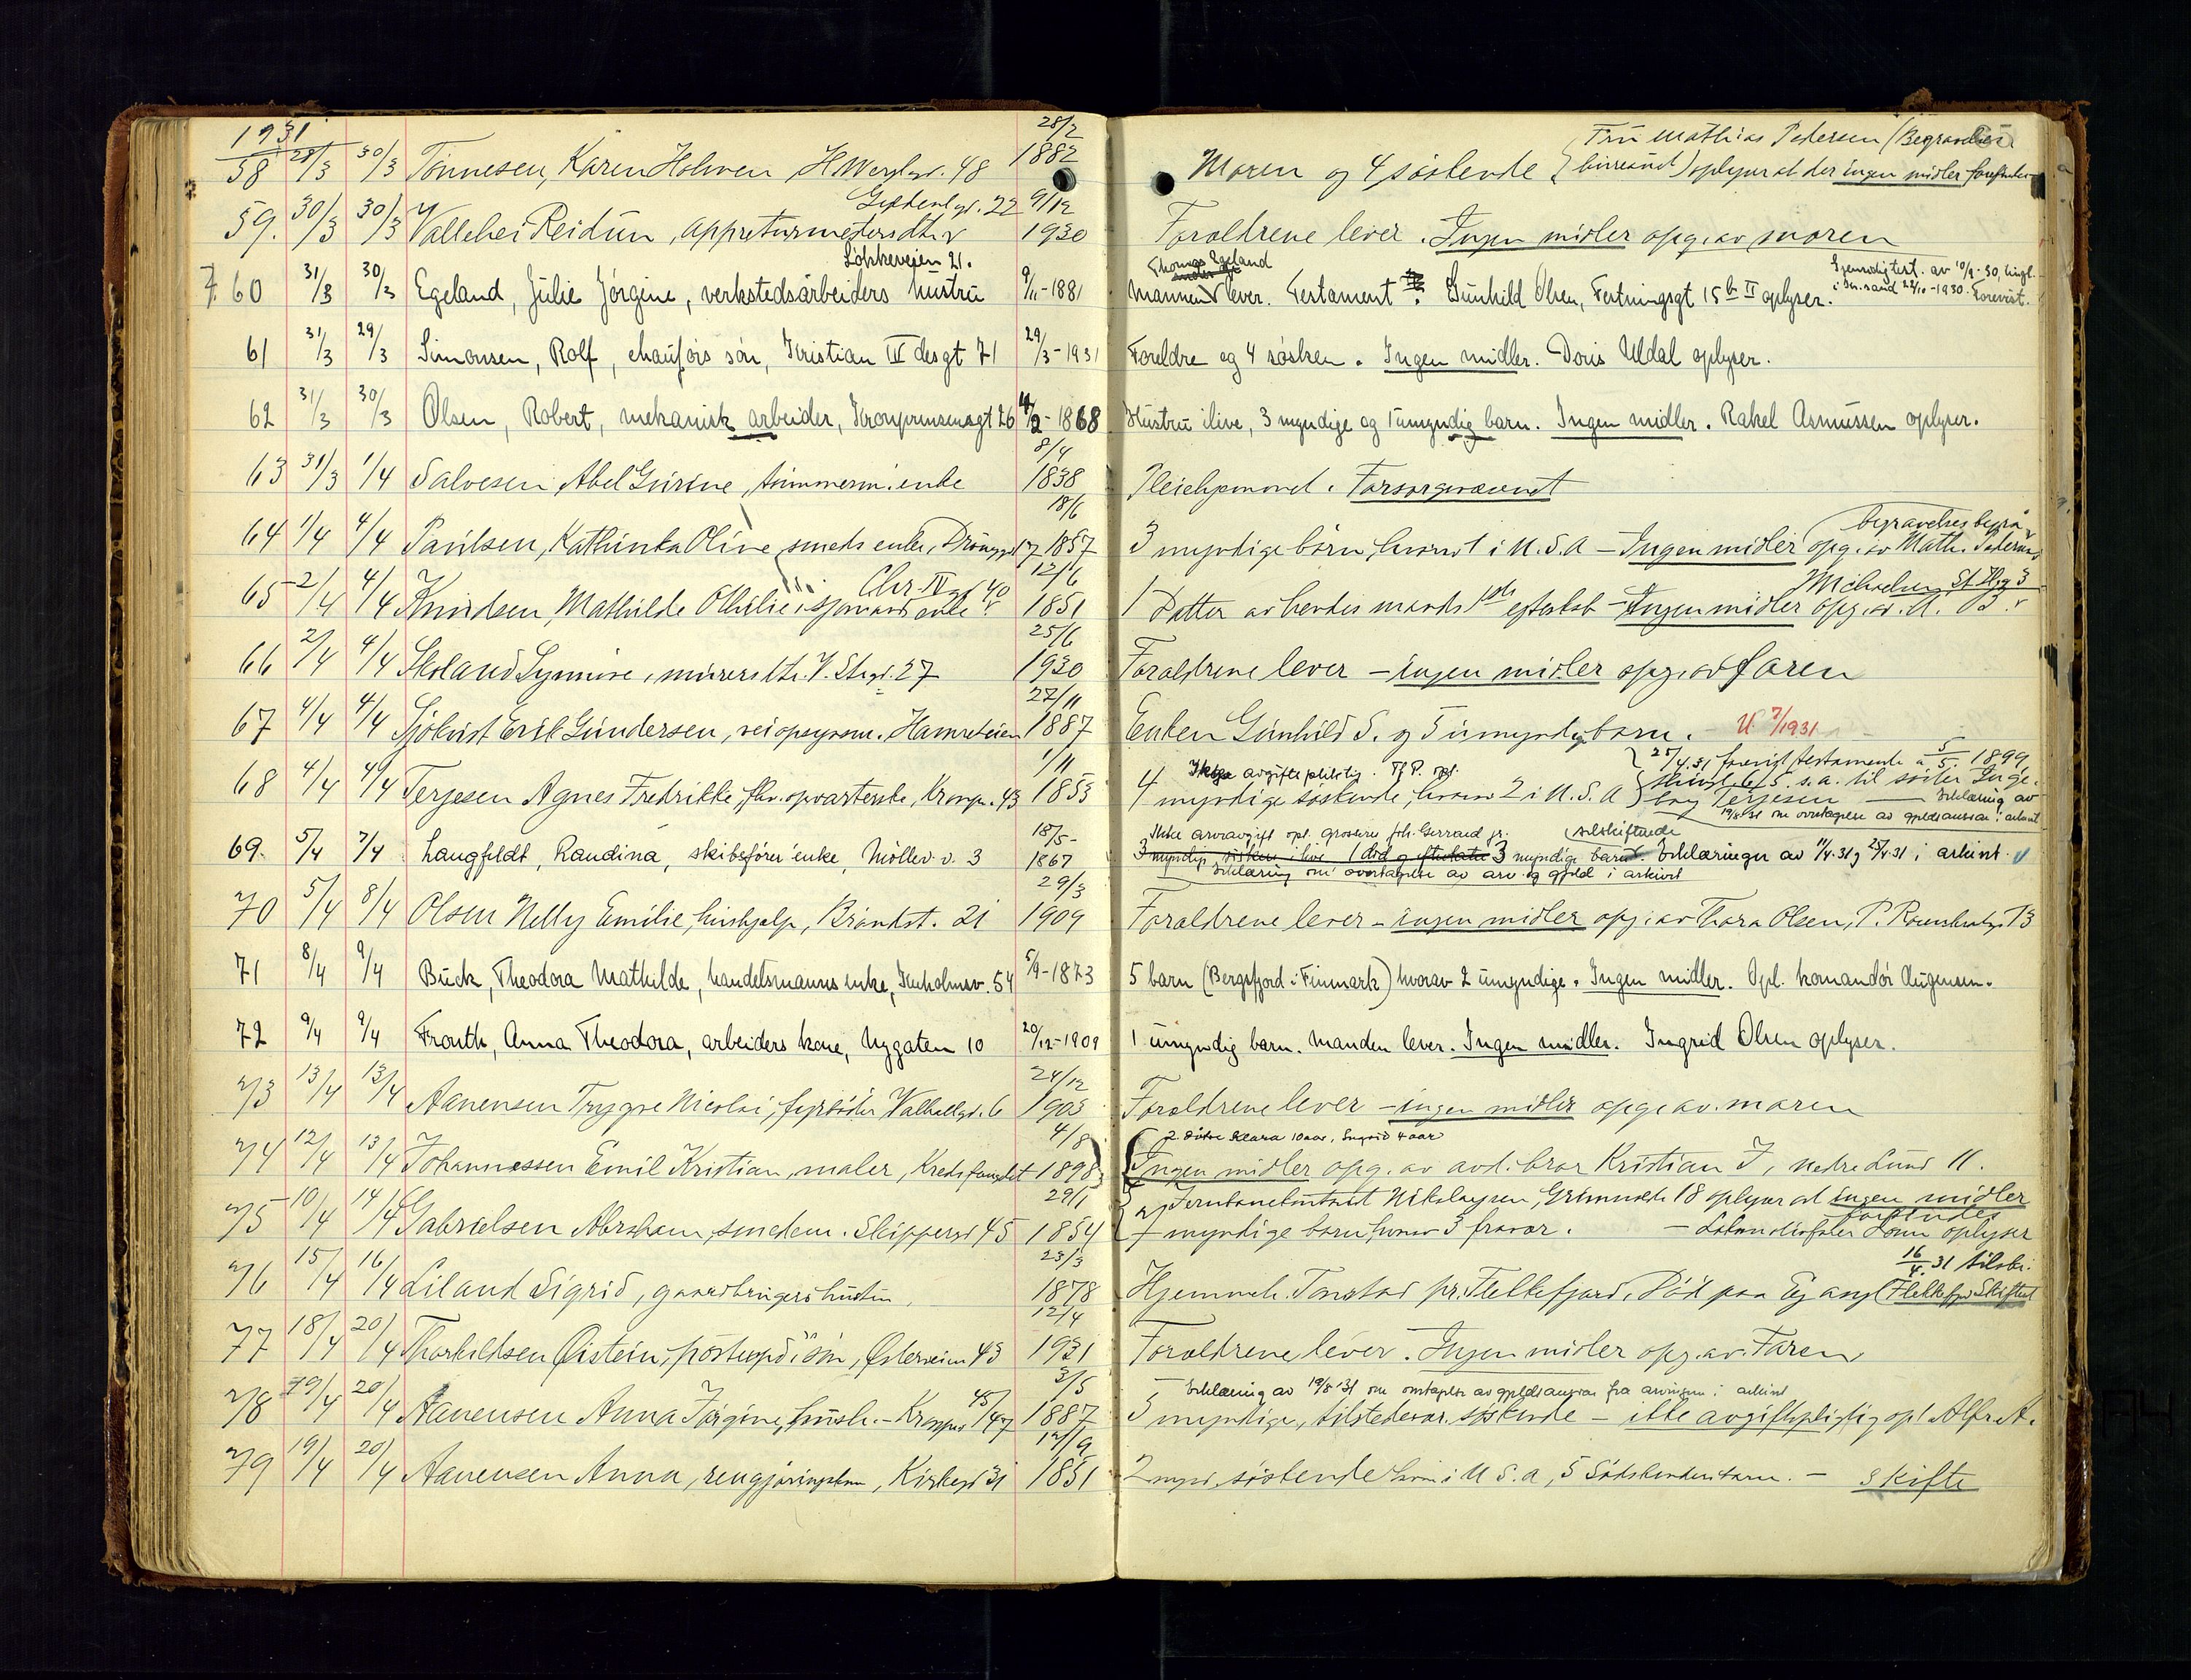 1931
58 28/3 30/3 Tønnesen, Karen Holmen H. Wergl.gt. 48 28/2 1882 Moren og 4 søskende { Frü Mathias Pedersen (Begravelsesbirreaut) oplyser at der ingen midler forefindes
59. 30/3 30/3 Vallehei Reidün, appreturmesters dtr. Gyldenl.gt. 22 9/12 1930 Forældrene lever. Ingen midler opg. av moren
60 31/3 30/3 Egeland, Jülie Jörgine, verkstedsarbeiders hüstrü Løkkeveien 21. 9/11-1881 Mannen Thomas Egeland lever. Testament ? Günhild Olsen, Festningsgt 15 b II oplyser. Gjensidig test. av 10/9-30, tingl. i Kr.sand 22/10-1930. Forevist.
61 31/3 29/3 Simonsen, Rolf, chauførs søn, Kristian IV des gt 71 29/3-1931 Foreldre og 4 søsken. Ingen midler. Doris Uldal oplyser.
62 31/3 30/3 Olsen, Robert, mekanisk arbeider, Kronprinsensgt 26 4/2-1868 Hüstrü ilive, 3 myndige og 1 ümyndig barn. Ingen midler. Rakel Asmüssen oplyser.
63 31/3 1/4 Salvesen, Abel Gürine, tømmerm. enke 8/4 1838 Pleiehjemmet. Forsorgsvæsenet
64 1/4 4/4 Paülsen, Kathinka Oline, smeds enke, Dronn.gt 17 18/6 1857 3 myndige børn, hvorav 1 i U.S.A – Ingen midler opg. av Math. Pedersens begravelsesbyrå
65 2/4 4/4 Knüdsen, Mathilde Othilie, sjømands enke Chr. IV gt 40 12/6 1851 1 Datter av hendes mands 1ste egteskab – Ingen midler opg. av A. B. Michaelsen, St. H.g 3
66 2/4 4/4 Skoland Synnøve, mürers dtr. V. Str.gt. 27 25/6 1930 Forældrene lever – ingen midler opg. av faren
67 4/4 4/4 Sjøkvist Erik Gündersen, veiopsynsm. Hamreheien 27/11 1887 Enken Günhild S. og 5 ümyndige barn. U. 7/1931
68 4/4 4/4 Terjesen Agnes Fredrikke, fhv. opvarterske, Kronpr. 43 1/11 1853 Ikke avgiftspliktig. Tf P. opl.
4 myndige søskende, hvorav 2 i U.S.A } 25/4.31 forevist testamente av 5/5. 1899
tingl. 6/5 s.a. til søster Inge-
borg Terjesen — Erklæring av
19/8 31 om overtagelse av gjeldsansvar i arkivet
69. 5/4 7/4 Langfeldt, Randina, skibsfører enke, Møllev. v. 3 18/5- 1867 Ikke arveavgift opl. grosserer Joh. Gerrard jr. (selskiftende
3 myndige søsken i live 1 død og efterlater 3 myndige barn. Erklæringer av 11/4.31 og 25/4 31 i arkivet.
Erklæring om overtagelse av arv og gjeld i arkivet
70 5/4 8/4 Olsen Nelly Emilie, hüshjelp, Brønkst. 21 29/3 1909 Forældrene lever – ingen midler opg. av Thora Olsen, P. 13
71 8/4 9/4 Bück, Theodora Mathilde, handelsmanns enke, Kuholmsv. 54 5/9-1873 5 barn (Bergsfjord i Finmark) hvorav 2 ümyndige. Ingen midler. Opl. komandør Aügensen.
72 9/4 9/4 Frouth, Anna Theodora, arbeiders kone, Nygaten 10 20/12-1909 1 ümyndig barn. Manden lever. Ingen midler. Ingrid Olsen oplyser.
73 13/4 13/4 Aanensen Trygve Nicolai, fyrbøder Valhallgt. 6 24/12 1903 Forældrene lever – ingen midler opg. av moren
74 12/4 13/4 Johannessen Emil Kristian, maler, Kredsfængslet 4/8 1898 2 døtre Klara 10 aar, Ingrid 4 aar
Ingen midler opg. av avd. bror Kristian J, nedre Lund 11.
75 10/4 14/4 Gabrielsen Abraham, smedem. Skippergt 45 29/1 1854 Jernbanebetjent Nikolaysen, Grimsveien 18 oplyser at ingen midler forefindes
7 myndige barn hvorav 3 fravær. – oplyser
76 15/4 16/4 Liland Sigrid, gaardbrugers hüstrü, 23/3 1878 Hjemmeh. Tonstad pr. Flekkefjord. Død paa Eg asyl 16/4. 31 tilskr. Flekkefjord Skifteret
77 18/4 20/4 Thorkildsen Øistein, postexped.s søn, Østerveien 43 12/4 1931 Forældrene lever. Ingen midler opg. av Faren
78 19/4 20/4 Aanensen Anna Jørgine, hüsh. – Kronpr. 45/47 3/5 1887 Erklæring av 19/8 31 om overtagelse av gjeldsansvar fra arvingene i arkivet
5 myndige, tilstedevær. søskende – ikke avgiftspligtig opl. Alfr. A.
79 19/4 20/4 Aanensen Anna, rengjøringskone, Kirkegt 31 12/9 1851 2 mynd. søskende hvorav i U.S.A, 5 Södskendebarn. – skifte